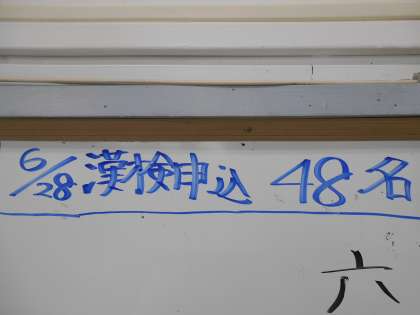 6/28 漢検申込 48名
六